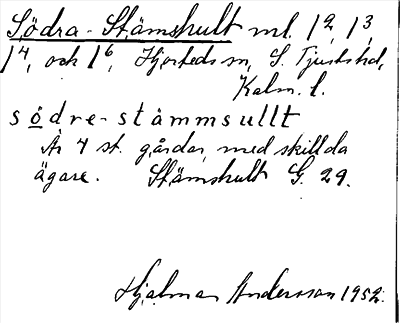 Södra-Stämshult ml. 1², 1³,
1⁴, och 1⁶, Hjorteds sn, S. Tjusts hd,
Kalm. l.
södre-stàmmsullt
Är 4 st. gårdar, med skillda
ägare. Stämshult G. 29.
Hjalmar Andersson 1952.